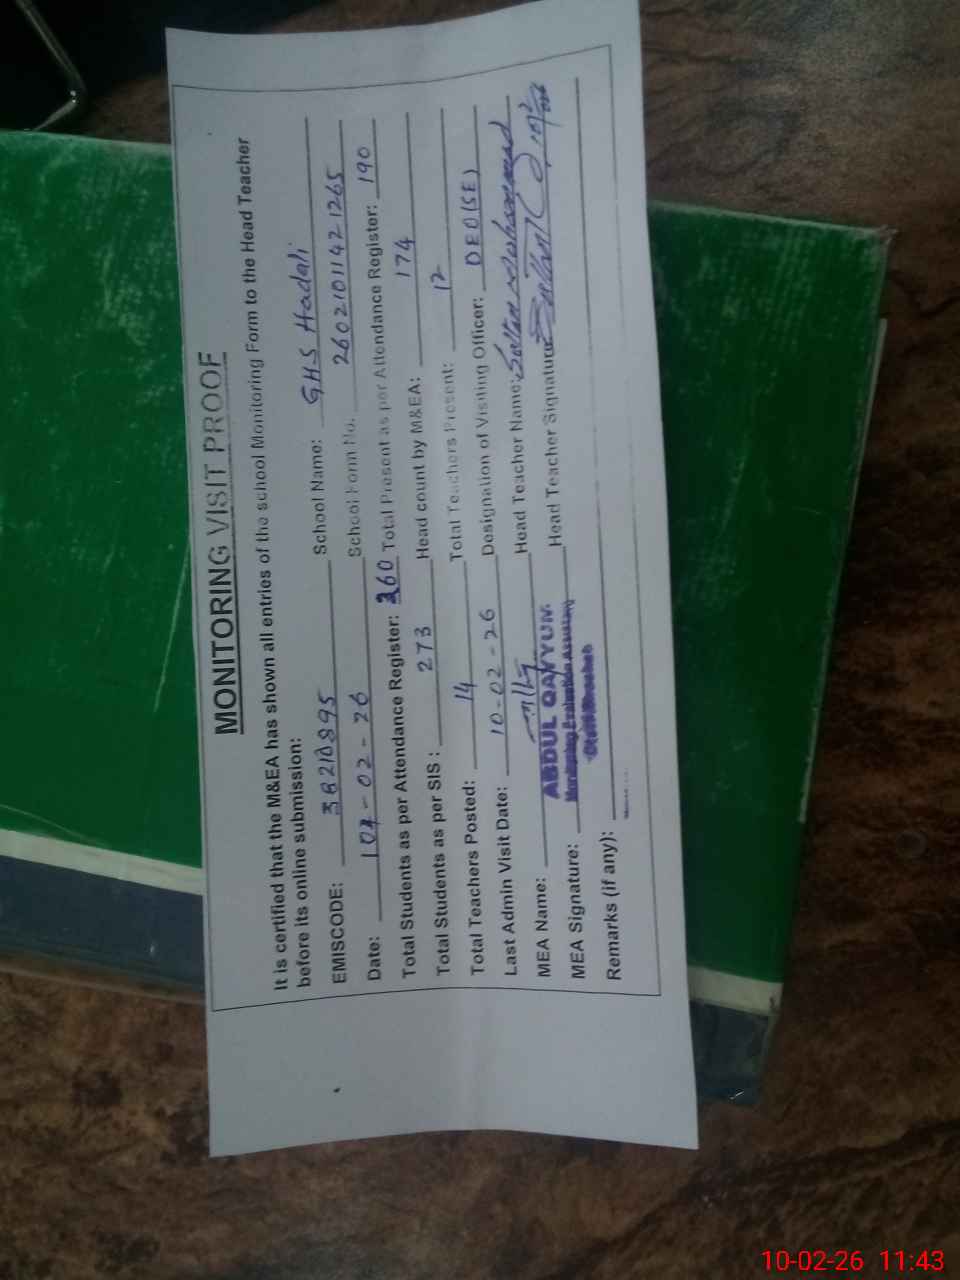 MONITORING VISIT PROOF
It is certified that the M&EA has shown all entries of the school Monitoring Form to the Head Teacher
before its online submission:
EMISCODE: 38210395 School Name: GHS Hadali
Date: 10-02-26 School Form No. 2602101142 1265
Total Students as per Attendance Register: 260 Total Present as per Attendance Register: 190
Total Students as per SIS : 273 Head count by M&EA: 174
Total Teachers Posted: 14 Total Teachers Present: 12
Last Admin Visit Date: 10-02-26 Designation of Visiting Officer: DEO(SE)
MEA Name: ABDUL QAYYUM Head Teacher Name: Sultan Muhammad
Monitoring Evaluation Assistant
MEA Signature: Head Teacher Signature
Remarks (if any):
10-02-26 11:43